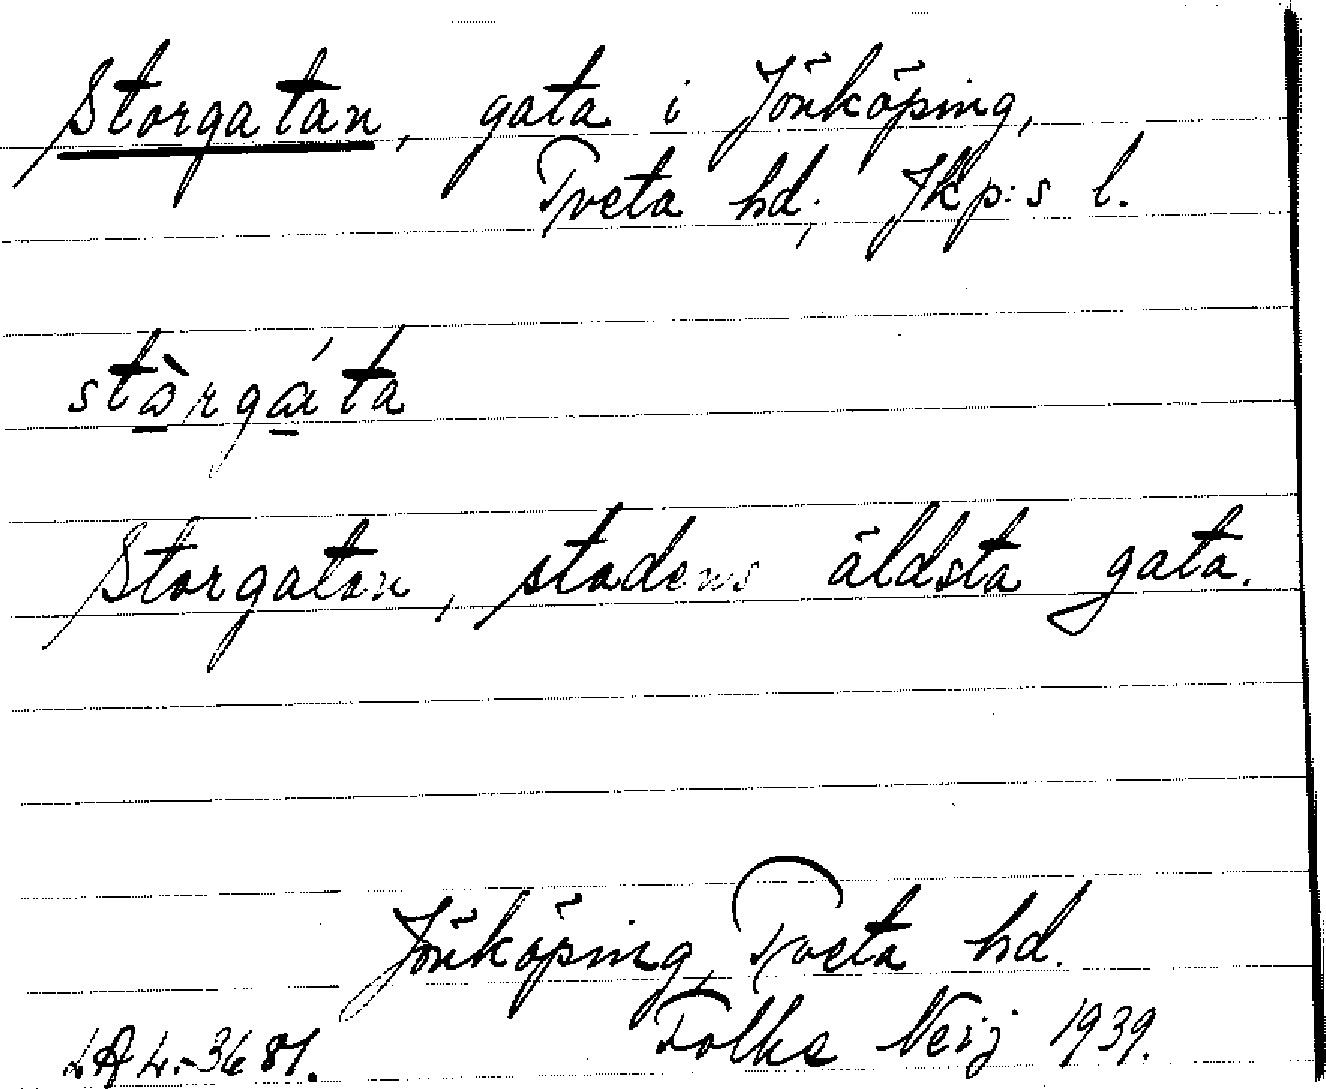 Storgatan, gata i Jönköping,
Tveta hd, Jkp:s l.
stòrgáta
Storgatan, stadens äldsta gata.
Jönköping, Tveta hd.
Folke Neij 1939.